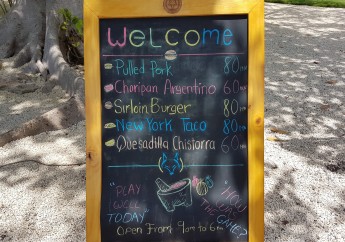 Welcome
Pulled Pork 80
Choripan Argentino 60
Sirloin Burger 80
New York Taco 80
Quesadilla Chistorra 60
"PLAY
WELL
TODAY"
HOW
THE
GAME?
Open From 9am to 6pm